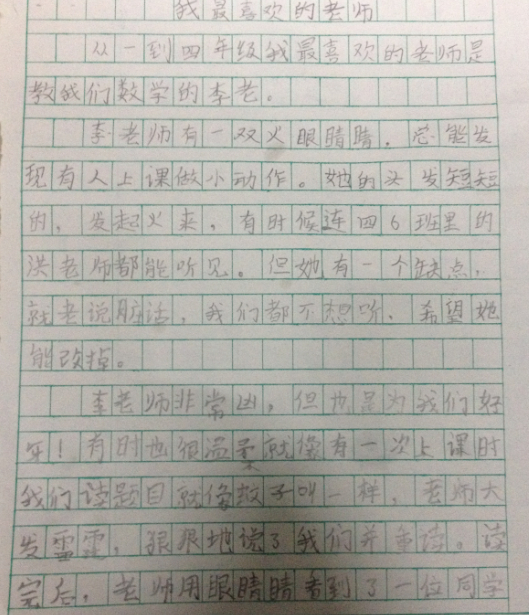 我最喜欢的老师
从一到四年级我最喜欢的老师是
教我们数学的李老。
李老师有一双火眼睛睛，总能发
现有人上课做小动作。她的头发短短
的，发起火来，有时候连四6班里的
洪老师都能听见。但她有一个缺点，
就老说脏话，我们都不想听，希望她
能改掉。
李老师非常凶，但也是为我们好
呀！有时也很温柔就像有一次上课时
我们读题目就像蚊子叫一样，老师大
发雷霆，狠狠地说了我们并重读。读
完后，老师用眼睛睛看到了一位同学